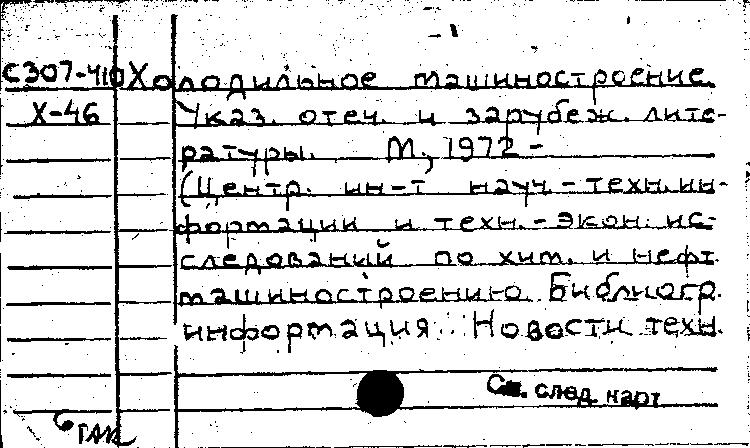 С307-410 Холодильное машиностроение.
Х-46 Указ. отеч. и зарубеж. лите-
ратуры. М., 1972 -
(Центр. ин-т науч.-техн. ин-
формации и техн.-экон. ис-
следований по хим. и нефт.
машиностроению. Библиогр.
информация. Новости техн.
См. след. карт
6 ГАК